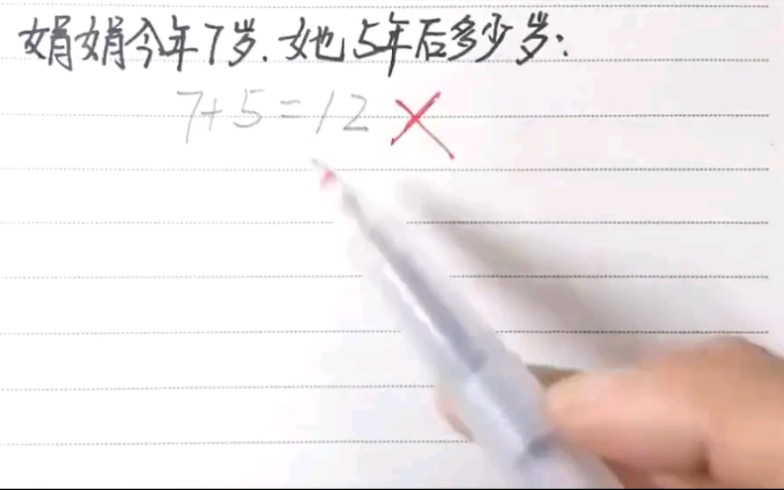 娟娟今年7岁.她5年后多少岁:
7+5=12